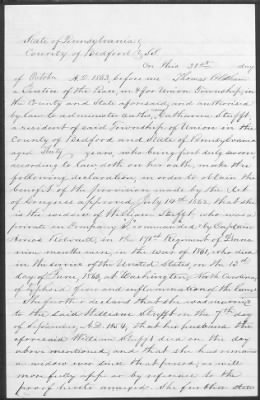 State of Pennsylvania
County of Bedford } Sct.
On this 31st day
of October A.D. 1863, before me Thomas
a Justice of the Peace, in & for Union Township, in
the County and State aforesaid, and authorised
by law to administer oaths, Catharine Stufft,
a resident of said Township of Union in the
County of Bedford and State of Pennsylvania
aged years, who being first duly sworn
according to law, doth on her oath, make the
following declaration, in order to obtain the
benefit of the provision made by the Act
of Congress approved July 14th 1862, that she
is the widow of William Stufft, who was a
private in Company commanded by Captain
in the 171st Regiment of Penna
nine months men, in the war of 1861, who died
in the service of the United States, on the
day of June, 1863, at Washington, North Carolina
of typhoid fever and inflammation of the lungs
She further declares that she was married
to the said William Stufft on the 7th day
of September, A.D. 1854, that her husband the
aforesaid William Stufft died on the day
above mentioned, and that she has remained
a widow ever since that period, as will
more fully appear by reference to the
proof hereto annexed. She further states